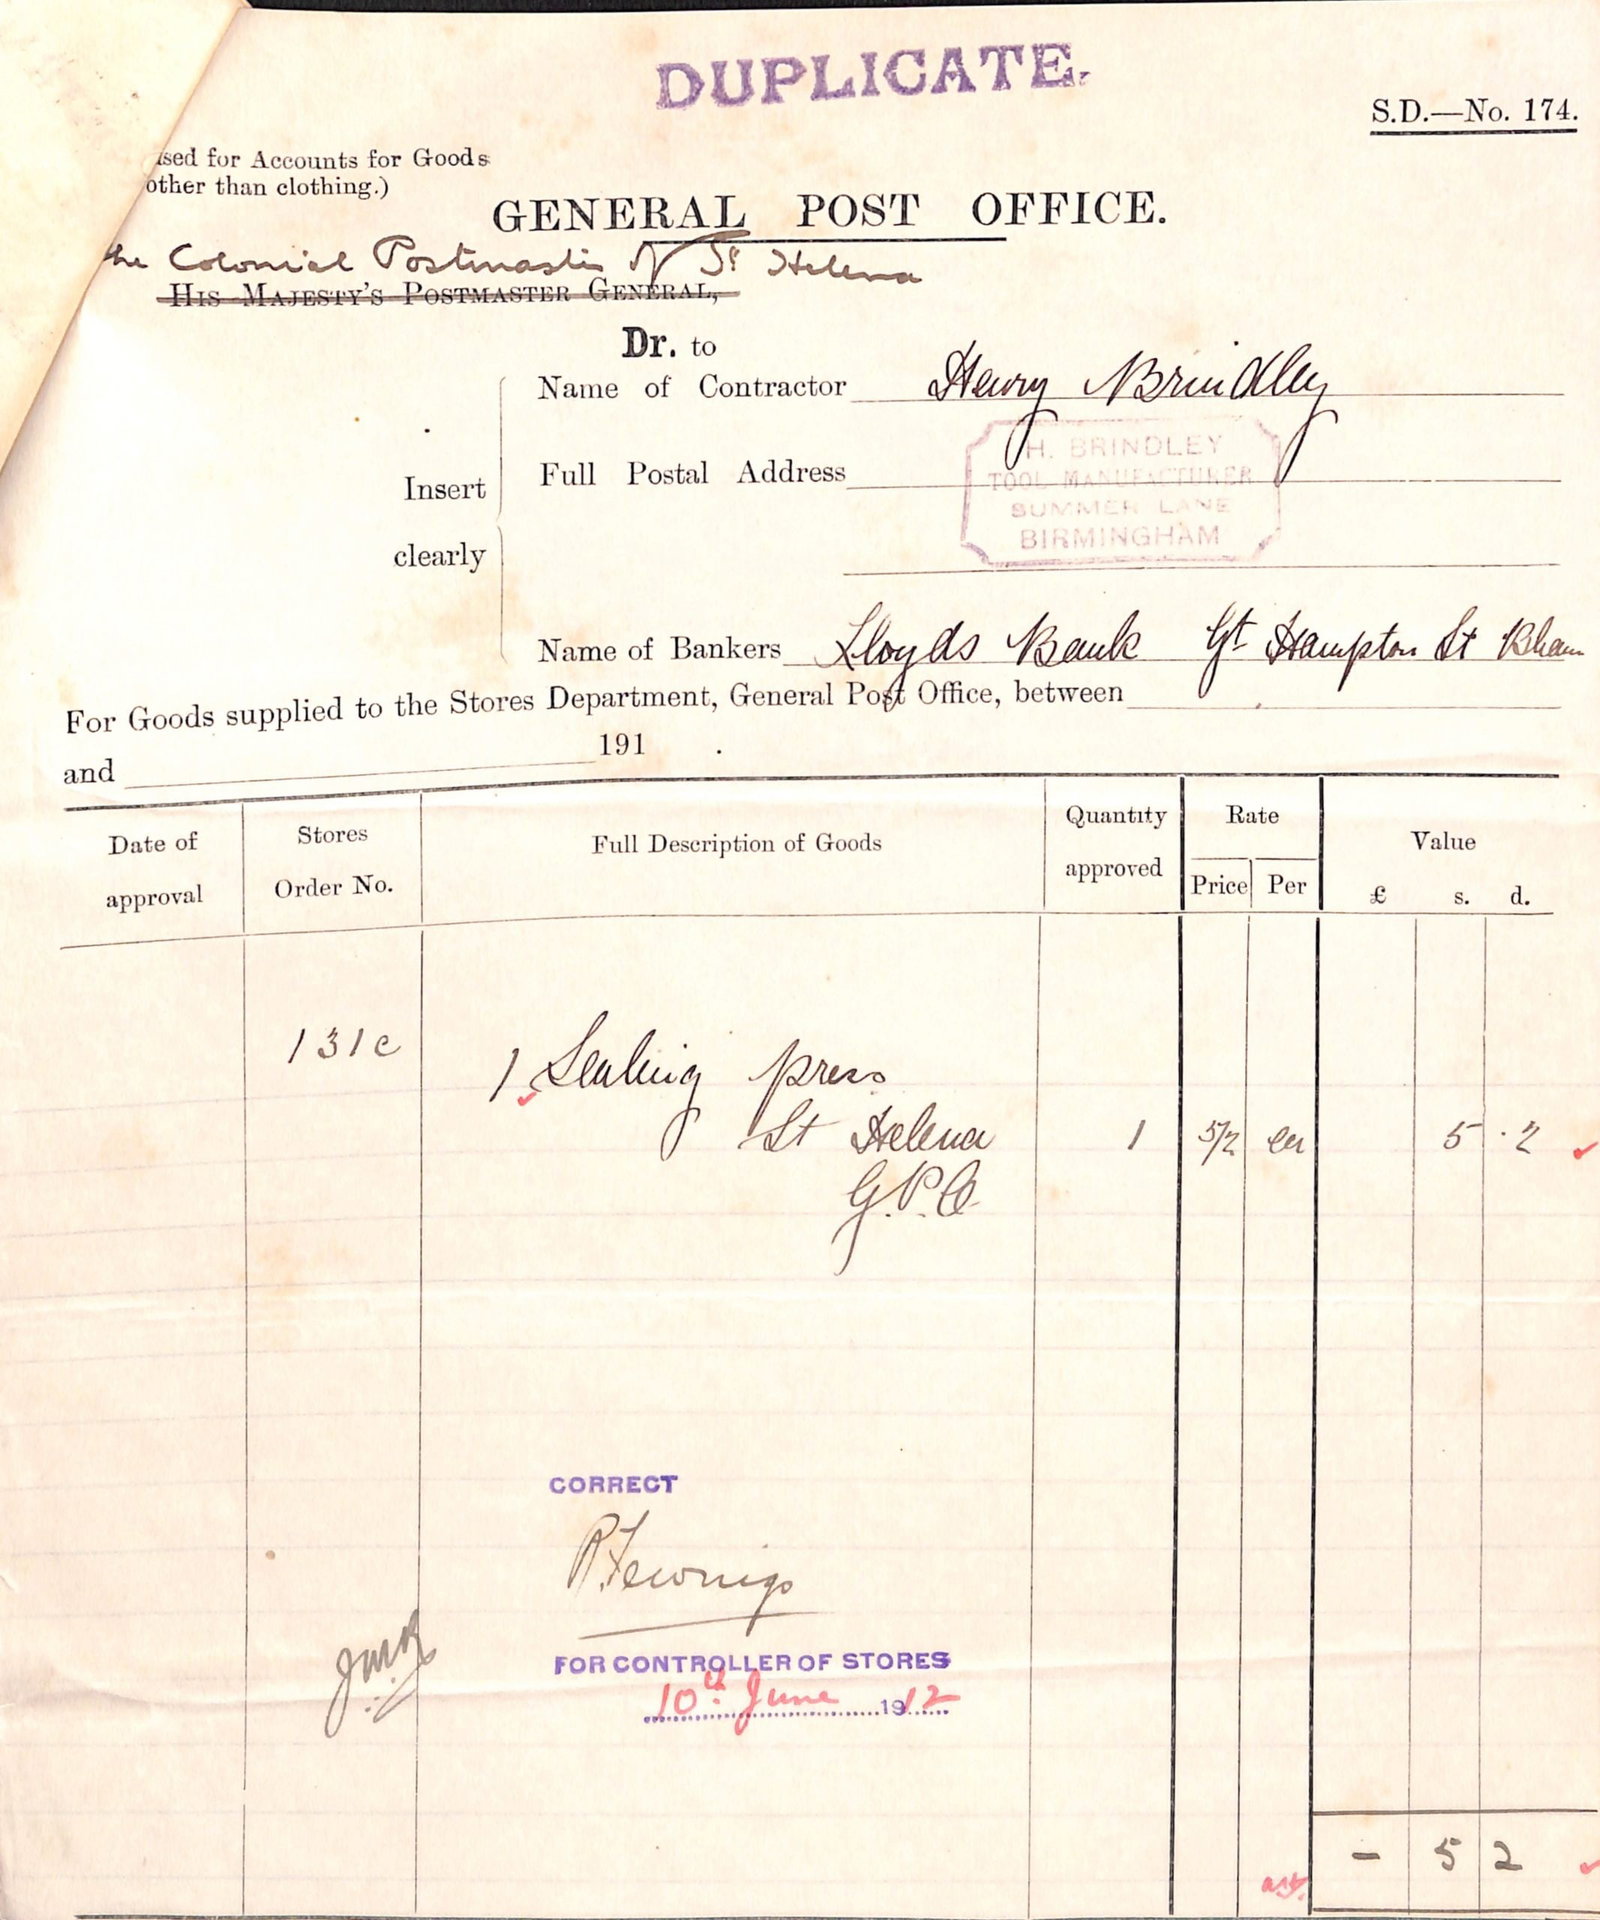 DUPLICATE.
S.D.—No. 174.
used for Accounts for Goods
other than clothing.)
GENERAL POST OFFICE.
the Colonial Postmaster of St Helena
HIS MAJESTY'S POSTMASTER GENERAL,
Dr. to
Name of Contractor Henry Brindley
H. BRINDLEY
Full Postal Address
TOOL MANUFACTURER
SUMMER LANE
BIRMINGHAM
Insert
clearly
Name of Bankers Lloyds Bank Gt Hampton St Bham
For Goods supplied to the Stores Department, General Post Office, between
and 191 .
Date of approval Stores Order No. Full Description of Goods Quantity approved Rate Price Per Value £ s. d.
131c 1 Sealing press
St Helena 1 5/2 ea 5 . 2
G.P.O.
CORRECT
FOR CONTROLLER OF STORES
10th June 1912
- 5 2